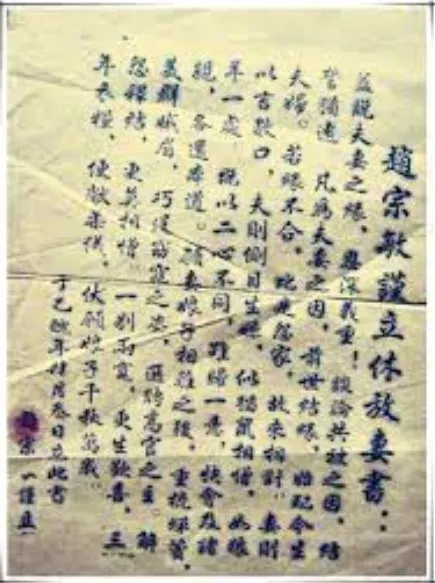 趙宗敏謹立休放妻書：
蓋說夫妻之緣，恩深義重！談論共被之因，結
誓幽遠 凡為夫妻之因，前世結緣，始配今生
夫婦。若緣不合，比是怨家，故來相對。妻則
以言數口，夫則側目生嫌，似貓鼠相憎，如狼
羊一處，既以二心不同，難歸一意，快會及諸
親，各還本道。願妻娘子相離之後，重梳蟬鬢，
美群娥眉，巧逞窈窕之姿，選聘高官之主。解
怨釋結，更莫相憎。一別兩寬，更生歡喜，三
年衣糧，便獻柔儀。伏願娘子千秋萬歲。
丁己蛇年月叁日立此書
趙宗一謹立